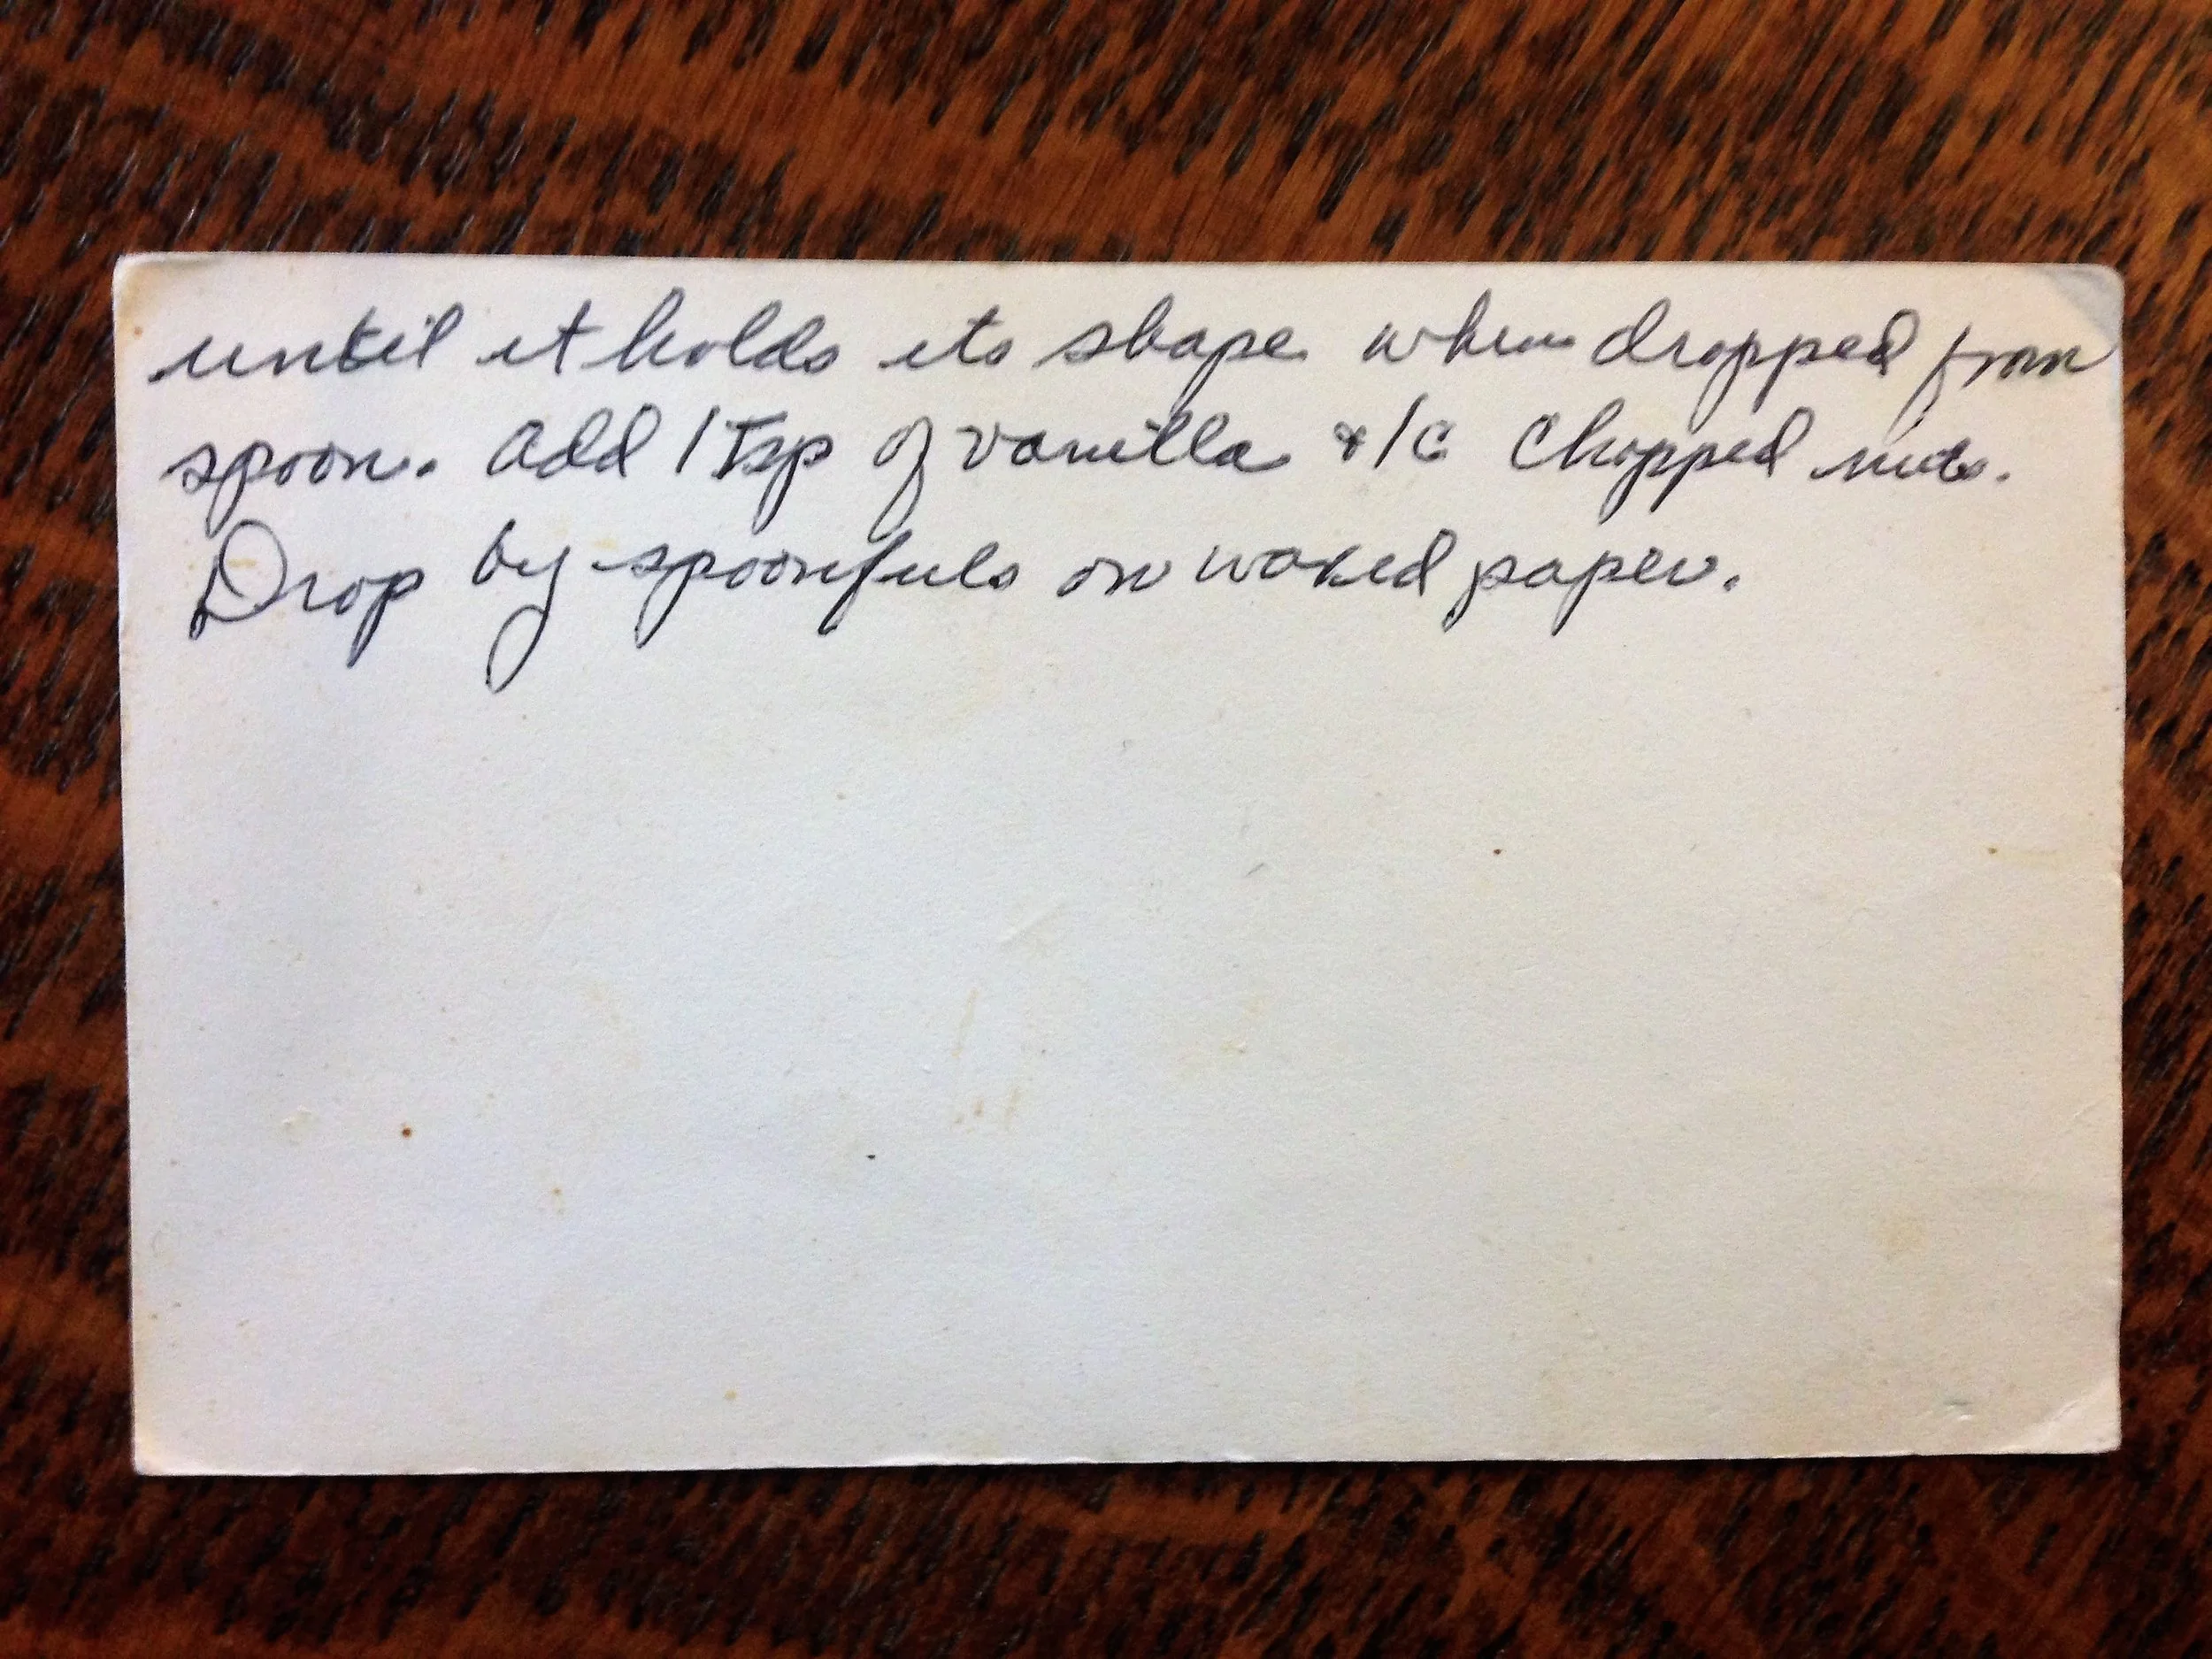 until it holds its shape when dropped from
spoon. Add 1 Tsp of vanilla & 1 C Chopped nuts.
Drop by spoonfuls on waxed paper.